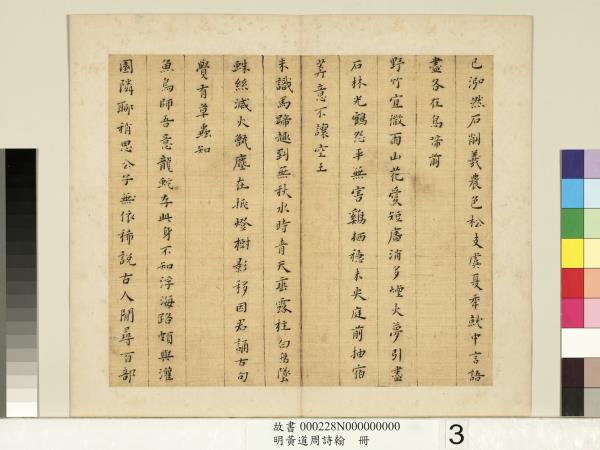 已泖然石削羲農色松支虞夏年獣中言語
盡各在鳥啼前
野竹宜微雨山花愛短廬消多煙火夢引盡
石林光鶴怨平無害雞栖穩未央庭前抽宿
莽意不讓空王
未識馬蹄趣到無秋水時青天垂露柱白鳥墜
蛛絲滅火甑塵在挑燈樹影移因君誦古句
覺有草蟲知
魚鳥師吾意龍蛇存此身不知浮海路頗與灌
園隣聊稍思公子無依稀說古人閒尋百部
故書 000228N000000000
明黃道周詩翰 冊
3